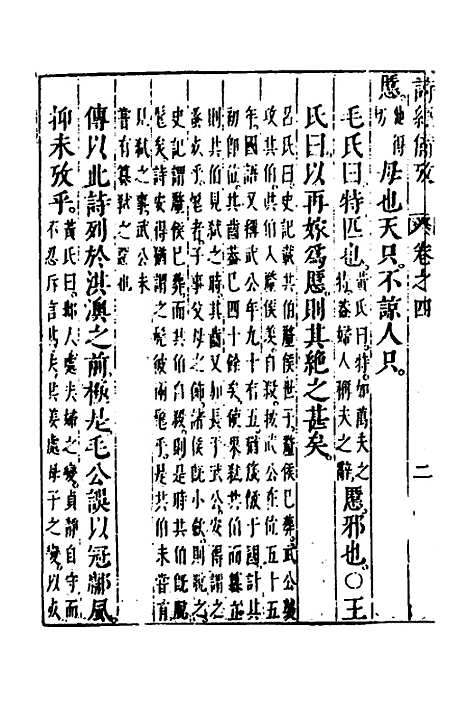 詩經備攷 卷之四 二
慝他得切母也天只不諒人只
毛氏曰特匹也黃氏曰特如萬夫之特蓋婦人稱夫之辭慝邪也○王
氏曰以再嫁爲慝則其絶之甚矣
呂氏曰史記載共伯釐侯世子釐侯已葬武公襲
攻共伯共伯入釐侯羨自殺按武公在位五十五
年國語又稱武公年九十有五猶箴儆于國計其
初卽位其齒蓋已四十餘矣使果弑共伯而篡立
則共伯見弑之時其齒又長於武公安得謂之
蚤死乎髦者子事父母之飾諸侯旣小斂則脫之
史記謂釐侯已葬而共伯自殺則是時共伯旣脫
髦矣詩安得猶謂之髧彼兩髦乎是共伯未嘗有
見弑之事武公未
嘗有篡弑之惡也
傳以此詩列於淇澳之前極是毛公誤以冠鄘風
抑未攷乎黃氏曰鄘人處夫婦之變貞靜自守而
不忍斥言其矣共姜處母子之變以